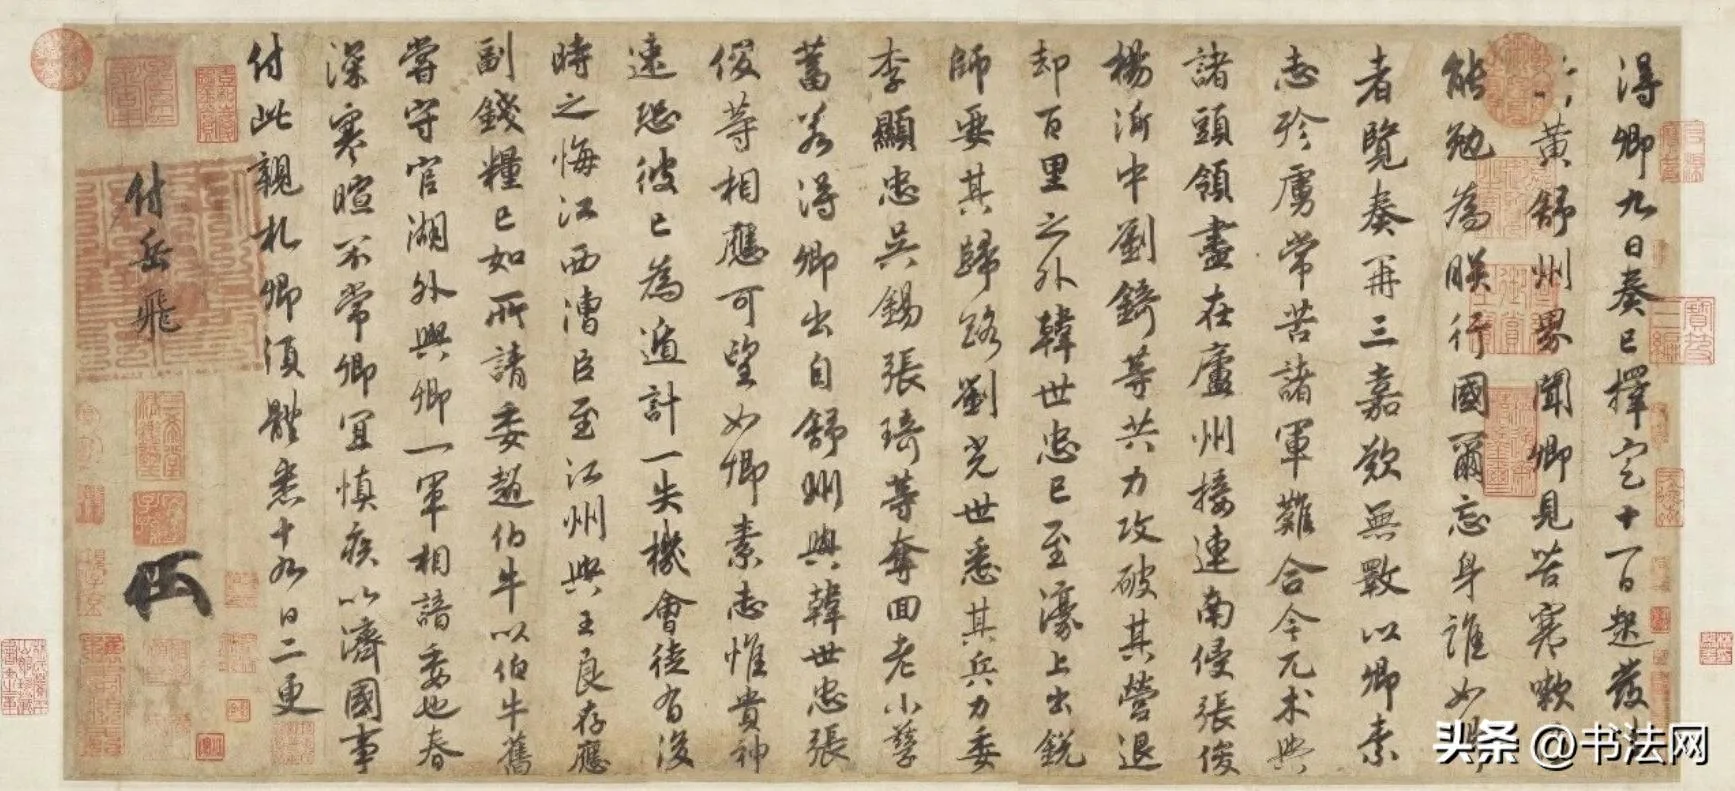 得卿九日奏已擇定十一日起發
黃舒州界聞卿見苦寒嗽
能勉為朕行國爾忘身誰如卿
者覽奏再三嘉歎無斁以卿素
志殄虜常苦諸軍難合今兀朮與
諸頭領盡在廬州接連南侵張俊
楊沂中劉錡等共力攻破其營退
却百里之外韓世忠已至濠上出銳
師要其歸路劉光世悉其兵力委
李顯忠吳錫張琦等奪回老小孳
畜若得卿出自舒州與韓世忠張
俊等相應可望如卿素志惟貴神
速恐彼已為遁計一失機會徒有後
時之悔江西漕臣至江州與王良存應
副錢糧已如所請委趙伯牛以伯牛舊
嘗守官湖外與卿一軍相諳委也春
深寒暄不常卿宜慎疾以濟國事
付此親札卿須體悉十九日二更
付岳飛
头条 @书法网